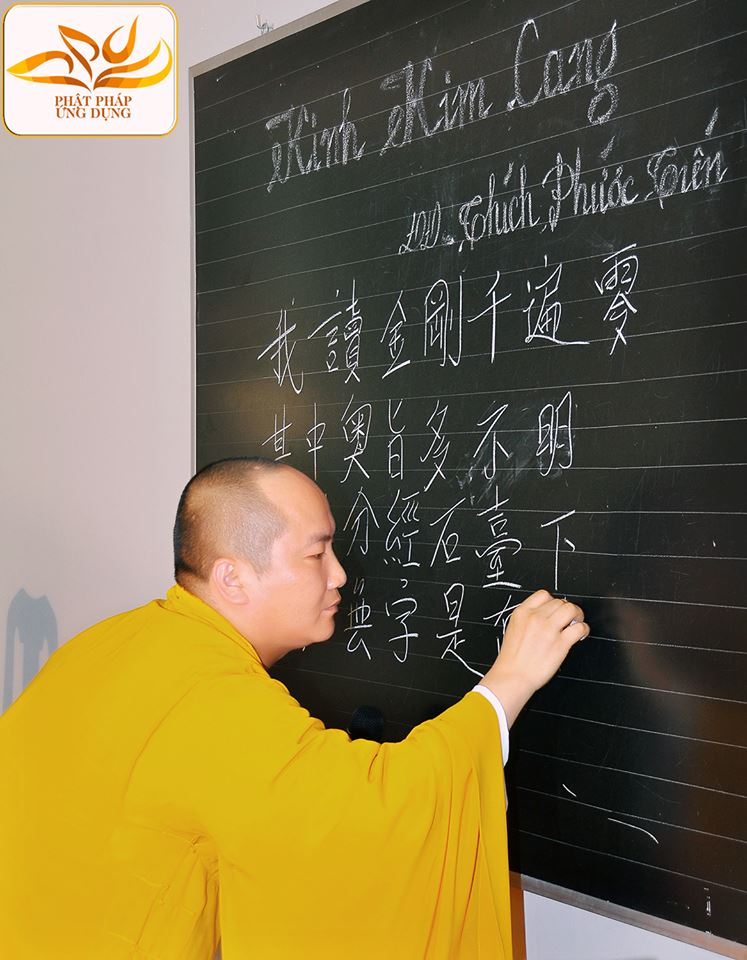 PHẬT PHÁP
ỨNG DỤNG
Kinh Kim Cang
ĐĐ. Thích Phước Tiến
我讀金剛千遍零
其中奧旨多不明
分經石臺下
無字是